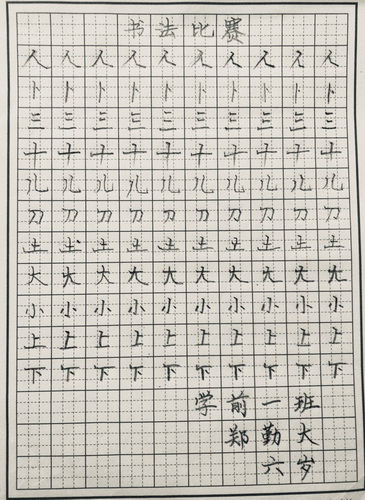 书法比赛
人人人人人人人人人
卜卜卜卜卜卜卜卜卜
三三三三三三三三三
十十十十十十十十十
儿儿儿儿儿儿儿儿儿
刀刀刀刀刀刀刀刀刀
土土土土土土土土土
大大大大大大大大大
小小小小小小小小小
上上上上上上上上上
下下下下下下下下下
学前一班
郑勤大
六岁